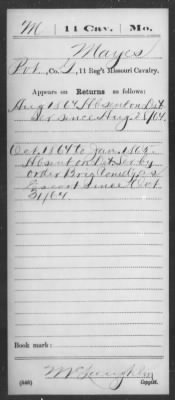 M | 11 Cav. | Mo.
Mayes
Pvt, Co. L, 11 Reg't Missouri Cavalry.
Appears on Returns as follows:
Aug 1864 Absent on Det
Ser since Aug 28/64.
Oct. 1864 to Jan. 1865.
Absent on Det Ser by
order Brig Comdg as
Escort since Oct.
31/64
Book mark:
McLoughlin
(546) Copyist.